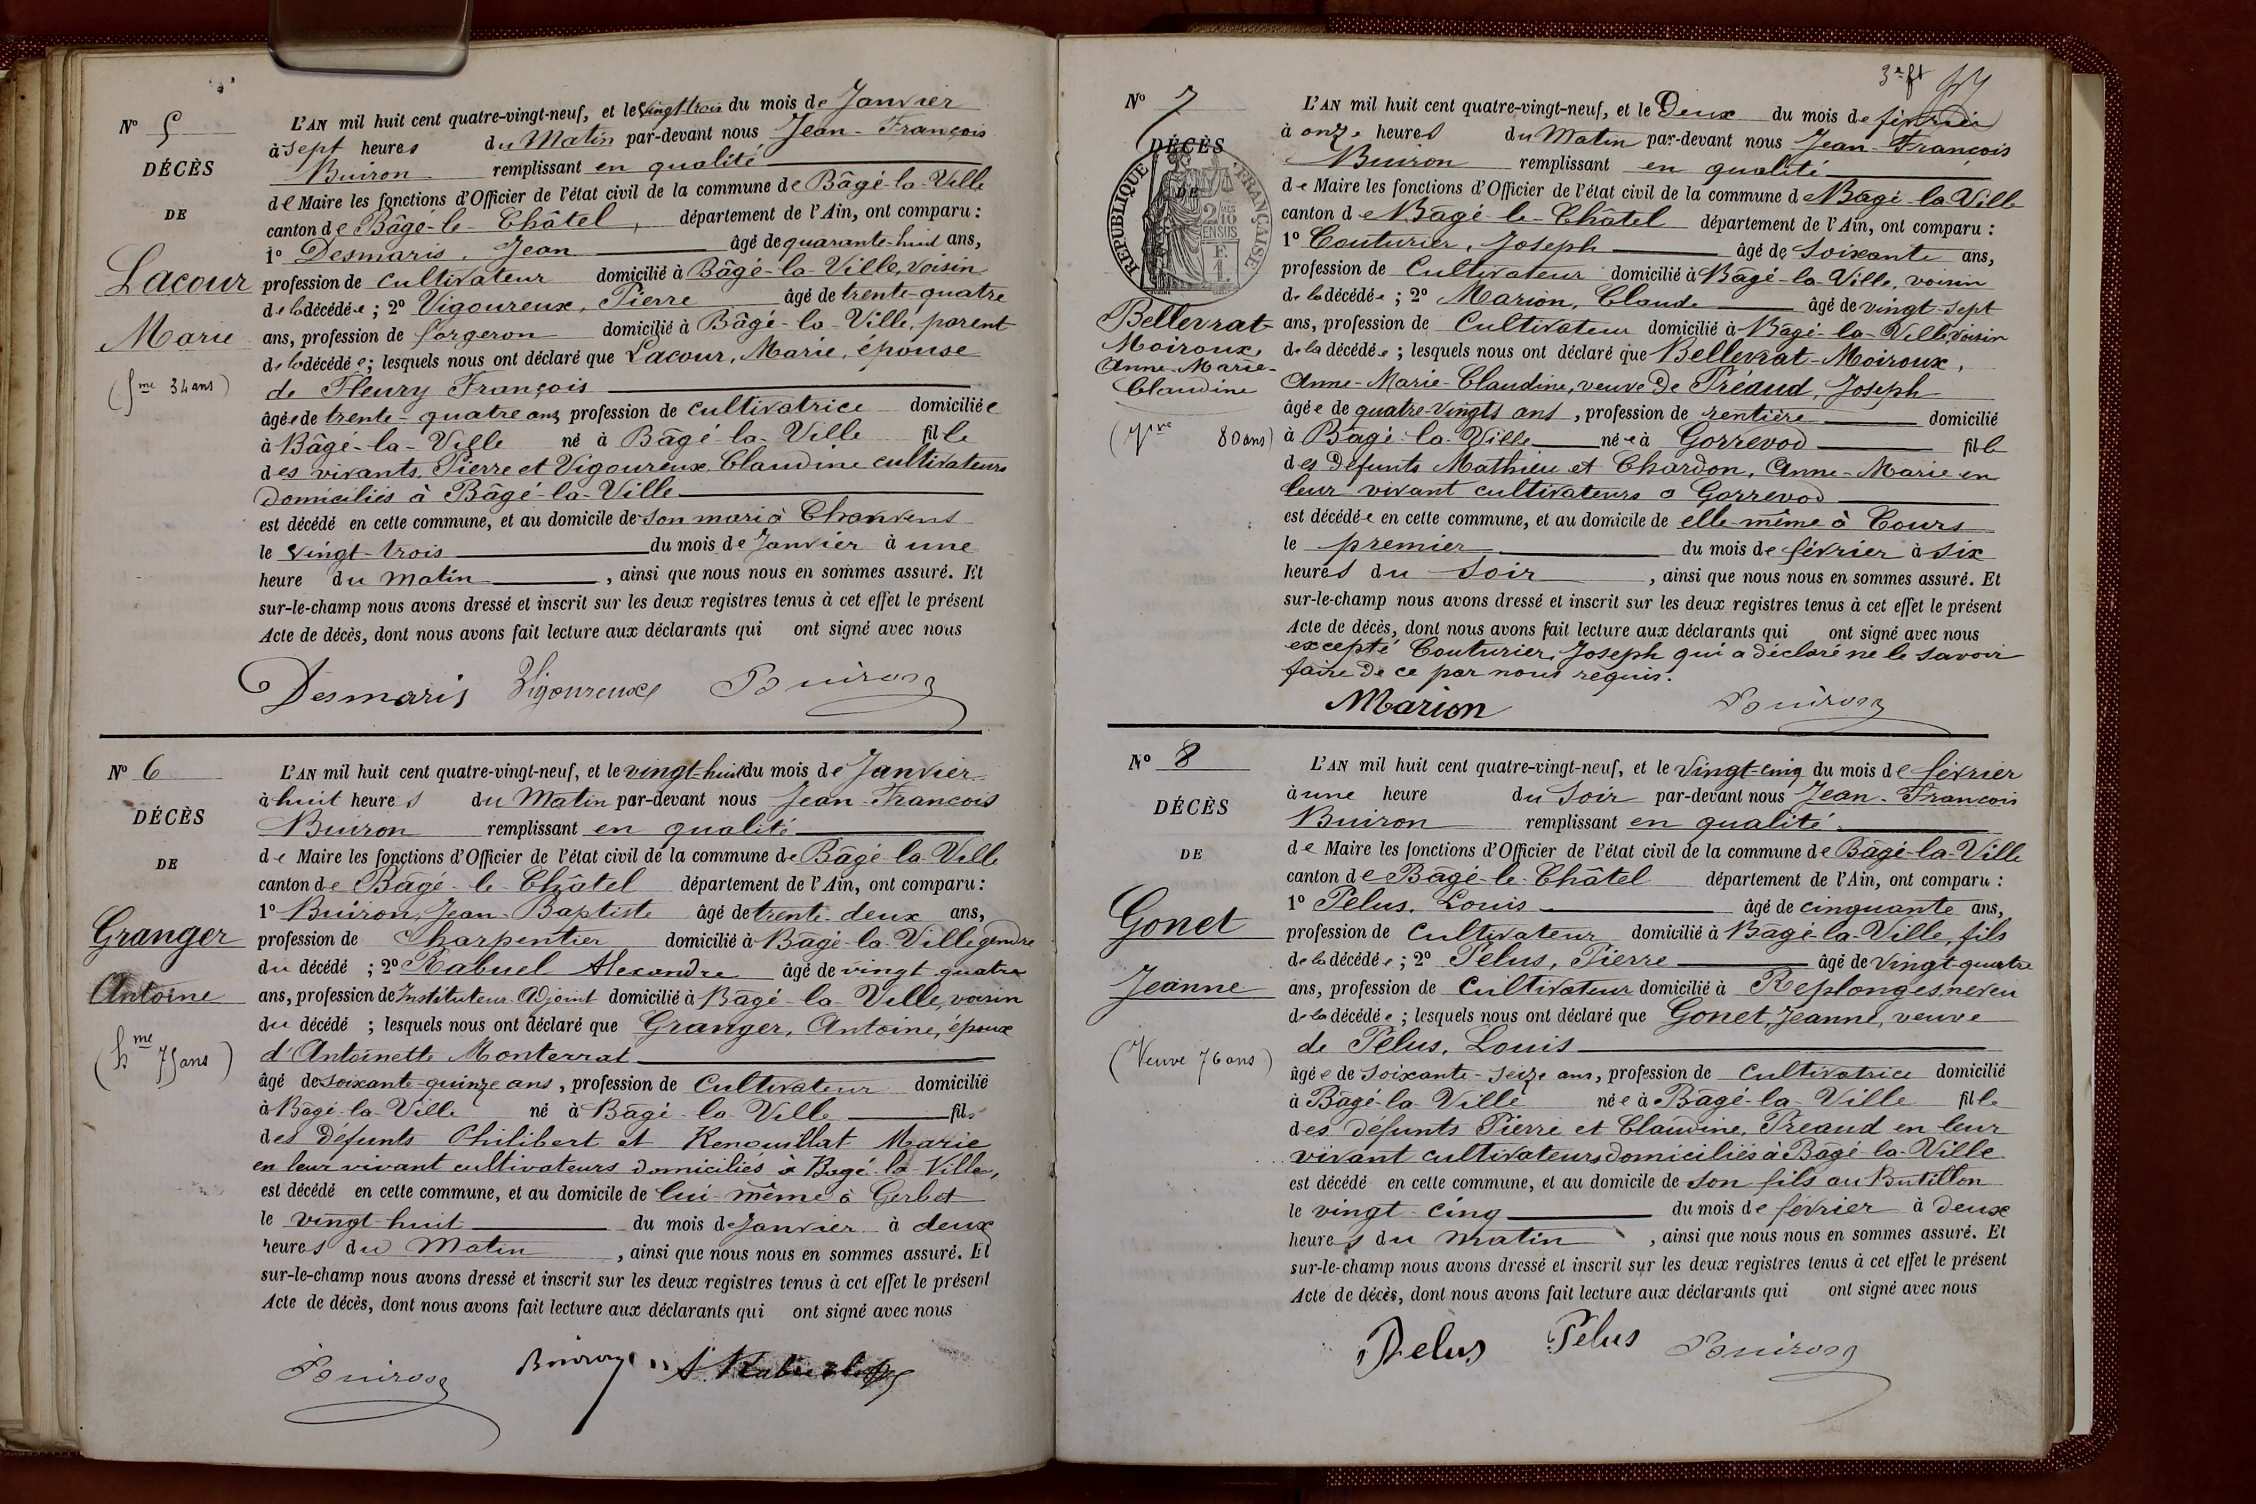 Nº 5
DÉCÈS
DE
Lacour
Marie
(fme 34 ans)
L'AN mil huit cent quatre-vingt-neuf, et le vingt trois du mois de Janvier
à sept heures du Matin par-devant nous Jean-François
Buiron remplissant en qualité
de Maire les fonctions d'Officier de l'état civil de la commune de Bâgé-la-Ville
canton de Bâgé-le-Châtel, département de l'Ain, ont comparu :
1º Desmaris, Jean âgé de quarante-huit ans,
profession de cultivateur domicilié à Bâgé-la-Ville, voisin
de la décédée ; 2º Vigoureux, Pierre âgé de trente-quatre
ans, profession de forgeron domicilié à Bâgé-la-Ville, parent
de la décédée ; lesquels nous ont déclaré que Lacour, Marie, épouse
de Fleury François
âgée de trente-quatre ans, profession de cultivatrice domiciliée
à Bâgé-la-Ville né à Bâgé-la-Ville fille
des vivants, Pierre et Vigoureux, Claudine cultivateurs
domiciliés à Bâgé-la-Ville
est décédé en cette commune, et au domicile de son mari à Chanvens
le vingt-trois du mois de Janvier à une
heure du matin, ainsi que nous nous en sommes assuré. Et
sur-le-champ nous avons dressé et inscrit sur les deux registres tenus à cet effet le présent
Acte de décès, dont nous avons fait lecture aux déclarants qui ont signé avec nous
Desmaris Vigoureux Buiron
Nº 6
DÉCÈS
DE
Granger
Antoine
(hme 75 ans)
L'AN mil huit cent quatre-vingt-neuf, et le vingt-huit du mois de Janvier
à huit heures du Matin par-devant nous Jean-François
Buiron remplissant en qualité
de Maire les fonctions d'Officier de l'état civil de la commune de Bâgé-la-Ville
canton de Bâgé-le-Châtel département de l'Ain, ont comparu :
1º Buiron, Jean-Baptiste âgé de trente-deux ans,
profession de Charpentier domicilié à Bâgé-la-Ville gendre
du décédé ; 2º Rabuel Alexandre âgé de vingt quatre
ans, profession de Instituteur Adjoint domicilié à Bâgé-la-Ville, voisin
du décédé ; lesquels nous ont déclaré que Granger, Antoine, époux
d'Antoinette Monterrat
âgé de soixante-quinze ans, profession de Cultivateur domicilié
à Bâgé-la-Ville né à Bâgé-la-Ville fils
des défunts Philibert et Renouillat Marie
en leur vivant cultivateurs domiciliés à Bâgé-la-Ville,
est décédé en cette commune, et au domicile de lui-même à Gerbet
le vingt-huit du mois de Janvier à deux
heures du Matin, ainsi que nous nous en sommes assuré. Et
sur-le-champ nous avons dressé et inscrit sur les deux registres tenus à cet effet le présent
Acte de décès, dont nous avons fait lecture aux déclarants qui ont signé avec nous
Buiron Buiron A. Rabuel
3e ft
Nº 7
DÉCÈS
DE
RÉPUBLIQUE FRANÇAISE
Bellevrat-
Moiroux,
Anne-Marie-
Claudine
(Vve 80 ans)
L'AN mil huit cent quatre-vingt-neuf, et le Deux du mois de février
à onze heures du Matin par-devant nous Jean-François
Buiron remplissant en qualité
de Maire les fonctions d'Officier de l'état civil de la commune de Bâgé-la-Ville
canton de Bâgé-le-Châtel département de l'Ain, ont comparu :
1º Couturier, Joseph âgé de soixante ans,
profession de Cultivateur domicilié à Bâgé-la-Ville, voisin
de la décédée ; 2º Marion, Claude âgé de vingt-sept
ans, profession de Cultivateur domicilié à Bâgé-la-Ville, voisin
de la décédée ; lesquels nous ont déclaré que Bellevrat-Moiroux,
Anne-Marie-Claudine, veuve de Préaud, Joseph
âgée de quatre-vingts ans, profession de rentière domicilié
à Bâgé-la-Ville née à Gorrevod fille
des défunts Mathieu et Chardon, Anne-Marie en
leur vivant cultivateurs à Gorrevod
est décédée en cette commune, et au domicile de elle-même à Cours
le premier du mois de février à six
heures du soir, ainsi que nous nous en sommes assuré. Et
sur-le-champ nous avons dressé et inscrit sur les deux registres tenus à cet effet le présent
Acte de décès, dont nous avons fait lecture aux déclarants qui ont signé avec nous
excepté Couturier, Joseph qui a déclaré ne le savoir
faire de ce par nous requis.
Marion Buiron
Nº 8
DÉCÈS
DE
Gonet
Jeanne
(Veuve 76 ans)
L'AN mil huit cent quatre-vingt-neuf, et le vingt-cinq du mois de février
à une heure du soir par-devant nous Jean-François
Buiron remplissant en qualité
de Maire les fonctions d'Officier de l'état civil de la commune de Bâgé-la-Ville
canton de Bâgé-le-Châtel département de l'Ain, ont comparu :
1º Pelus, Louis âgé de cinquante ans,
profession de cultivateur domicilié à Bâgé-la-Ville, fils
de la décédée ; 2º Pelus, Pierre âgé de vingt-quatre
ans, profession de cultivateur domicilié à Replonges, neveu
de la décédée ; lesquels nous ont déclaré que Gonet, Jeanne, veuve
de Pelus, Louis
âgée de soixante-seize ans, profession de cultivatrice domicilié
à Bâgé-la-Ville née à Bâgé-la-Ville fille
des défunts Pierre et Claudine, Préaud en leur
vivant cultivateurs domiciliés à Bâgé-la-Ville
est décédé en cette commune, et au domicile de son fils au Butillon
le vingt-cinq du mois de février à deux
heures du matin, ainsi que nous nous en sommes assuré. Et
sur-le-champ nous avons dressé et inscrit sur les deux registres tenus à cet effet le présent
Acte de décès, dont nous avons fait lecture aux déclarants qui ont signé avec nous
Pelus Pelus Buiron